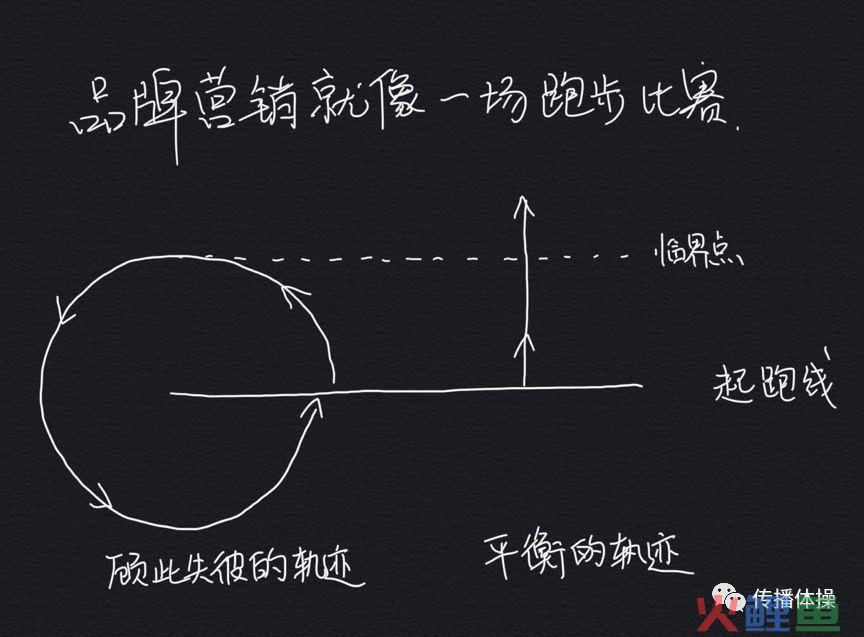 品牌营销就像一场跑步比赛.
临界点
起跑线
顾此失彼的轨迹
平衡的轨迹
传播体操
火鲤鱼